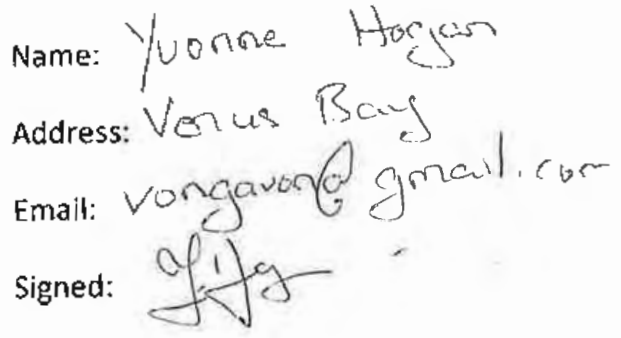 Name: Yvonne Horgan
Address: Venus Bay
Email: vongavon@gmail.com
Signed: